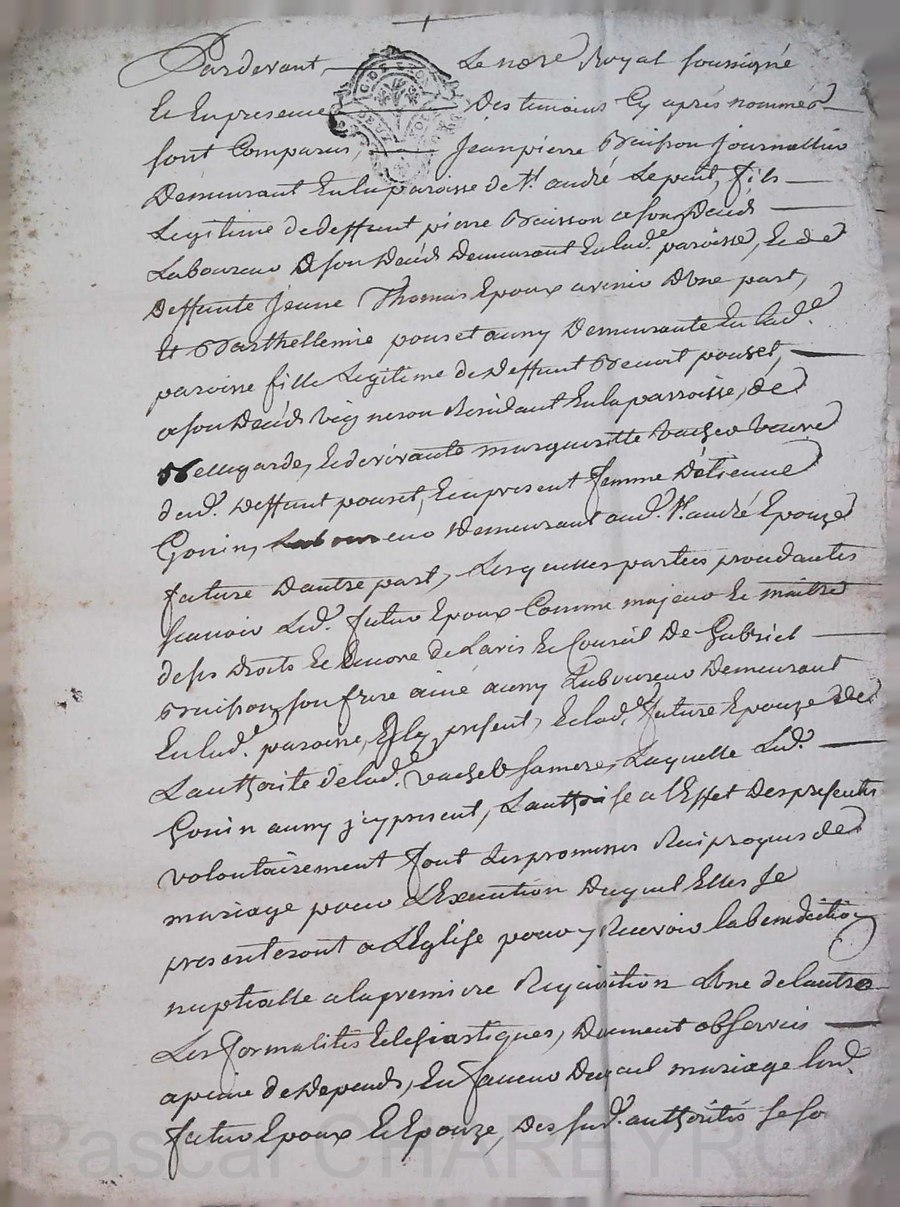 Pardevant Le nore Royal soussigné
Et En presence Des temoins Cy après nommés
sont Comparus, Jean pierre Buisson journallier
Demeurant En la paroisse de St. andré Le puit, fils
Legitime de deffunt pierre Buisson a son Deceds
Laboureur De son Deceds Demeurant En lad.e paroisse, Et de
Deffunte jeanne Thomas Epoux avenir D'une part,
Et Barthellemie pouset aussy Demeurante En lad.e
paroisse fille Legitime de Deffunt Benoit pouset,
a son Deceds vigneron Residant En la parroisse, de
Bellegarde, Et de vivante margueritte vacher veuve
dud. Deffunt pouset, En present femme D'etienne
Gonin, Laboureur Demeurant aud. St. andré Epouze
future D'autre part, Lesquelles parties procedantes
scavoir Led. futur Epoux Comme majeur Et maitre
de ses Droits Et Encore de L'avis Et Conseil De Gabriel
Buisson, son frere ainé aussy Laboureur Demeurant
En lad.e paroisse, Ycy present, Et lad.e future Epouze de
L'authorité de lad.e vacher sa mere, Laquelle Led.
Gonin aussy j'cy present, L'authorise a l'Effet Des presentes
volontairement font Les promesses Reciproques de
mariage pour L'Execution Duquel Elles se
presenteront a L'Eglise pour y Recevoir la benediction
nuptialle a la premiere Requisition L'une de l'autre
Les formalités Eclesiastiques, Duement observées
a peine de Depends, En faveur Duquel mariage Lesd.
futur Epoux Et Epouze, Des sud. authorités se so
Pascal CHAREYRON